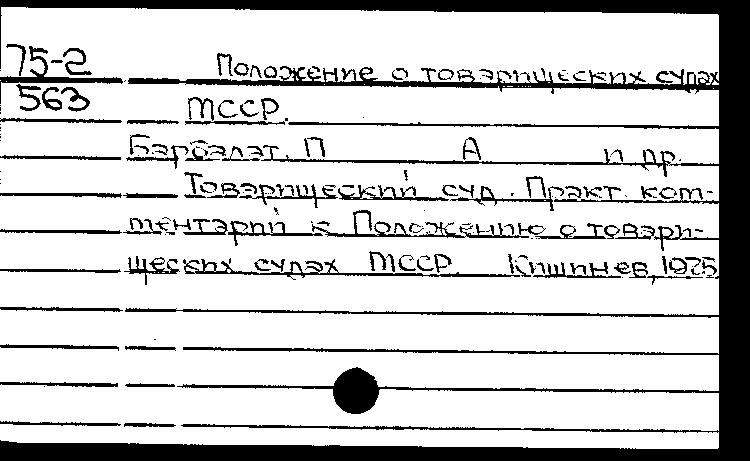 75-2 Положение о товарищеских судах
563 МССР.
Барбалат, П А и др.
Товарищеский суд. Практ. ком-
ментарий к Положению о товари-
щеских судах МССР. Кишинев, 1975